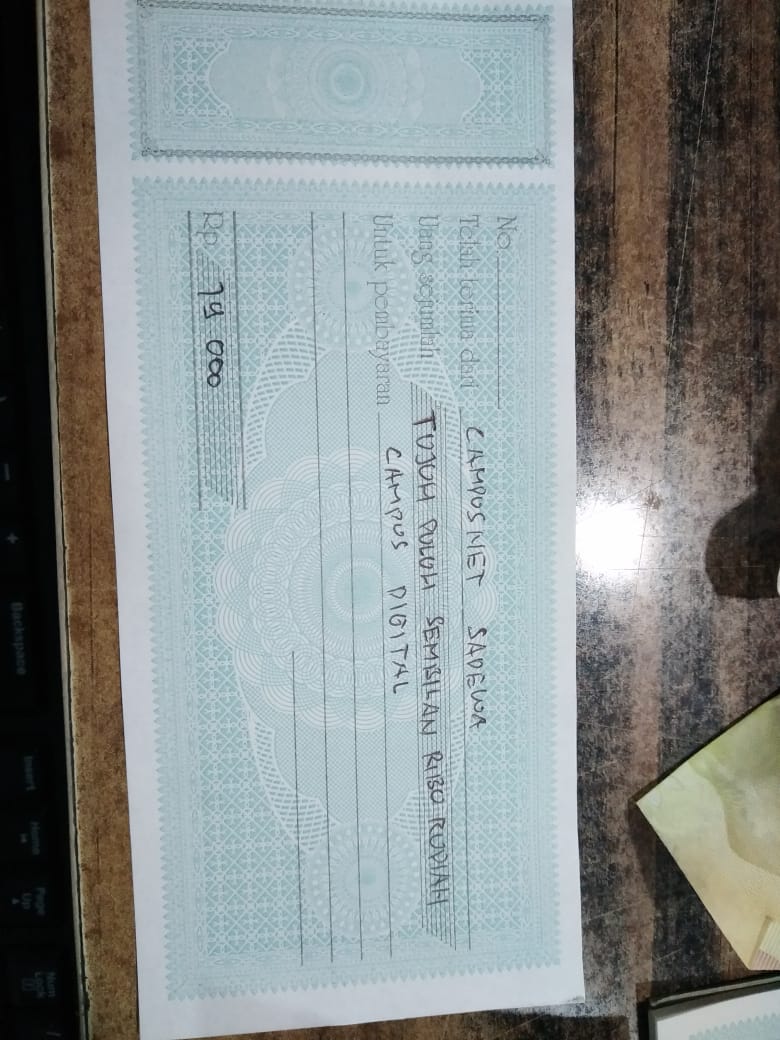 No.
Telah terima dari CAMPUSNET SADEWA
Uang sejumlah TUJUH PULUH SEMBILAN RIBU RUPIAH
Untuk pembayaran CAMPUS DIGITAL
Rp. 79 000
Backspace
Insert
Home
Page Up
Num Lock